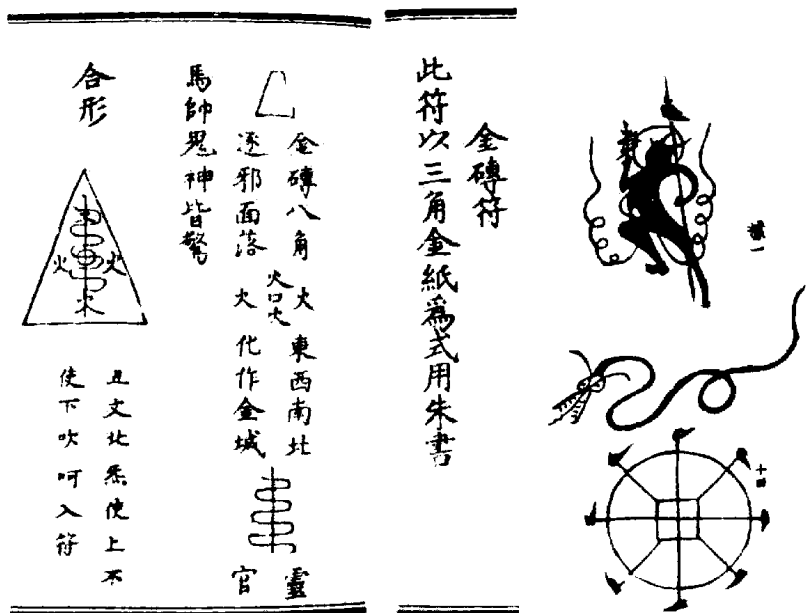 十四
金磚符
此符以三角金紙爲式用朱書
金磚八角
火
東西南北
火口火
逐邪面落
火
化作金城
靈
官
馬帥鬼神皆驚
合形
火
火
火
丑文北炁使上不
使下吹呵入符